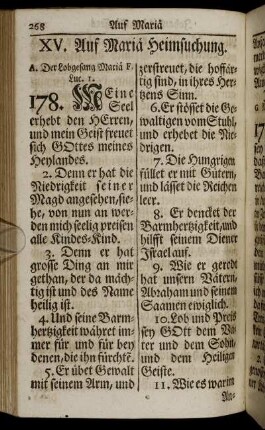 268 Auf Mariä
XV. Auf Mariä Heimsuchung.
A. Der Lobgesang Mariä F.
Luc. 1.
178. MEine
Seel
erhebt den HErren,
und mein Geist freuet
sich GOttes meines
Heylandes.
2. Denn er hat die
Niedrigkeit seiner
Magd angesehen, sie-
he, von nun an wer-
den mich seelig preisen
alle Kindes-Kind.
3. Denn er hat
grosse Ding an mir
gethan, der da mäch-
tig ist und des Name
heilig ist.
4. Und seine Barm-
hertzigkeit währet im-
mer für und für bey
denen, die ihn fürchtē.
5. Er übet Gewalt
mit seinem Arm, und
zerstreuet, die hoffär-
tig sind, in ihres Her-
tzens Sinn.
6. Er stösset die Ge-
waltigen vom Stuhl,
und erhebet die Nie-
drigen.
7. Die Hungrigen
füllet er mit Gütern,
und lässet die Reichen
leer.
8. Er dencket der
Barmhertzigkeit, und
hilfft seinem Diener
Israel auf.
9. Wie er geredt
hat unsern Vätern,
Abraham und seinem
Saamen ewiglich.
10. Lob und Preiß
sey GOtt dem Va-
ter und dem Sohn,
und dem Heiligen
Geiste.
11. Wie es war im
An-